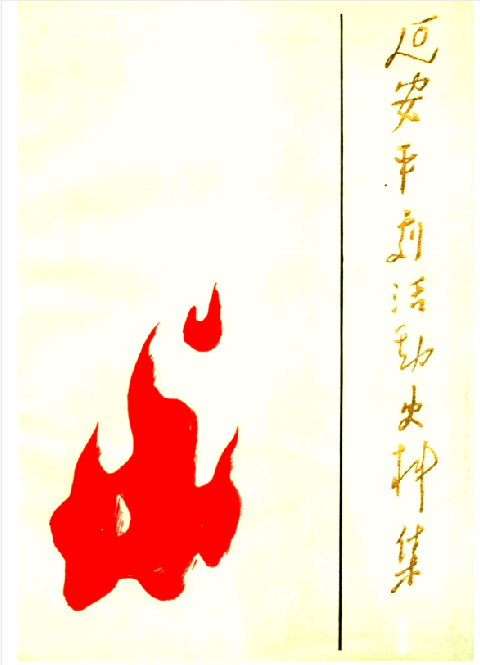 延安平剧活动史料集